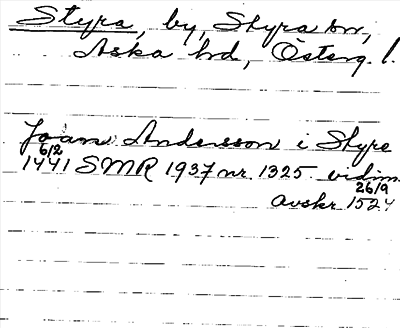 Styra, by, Styra sn,
Aska hd, Österg. l.
Joan Andersson i Styre
6/2
1441 SMR 1937 nr 1325 vidim.
26/9
avskr. 1524